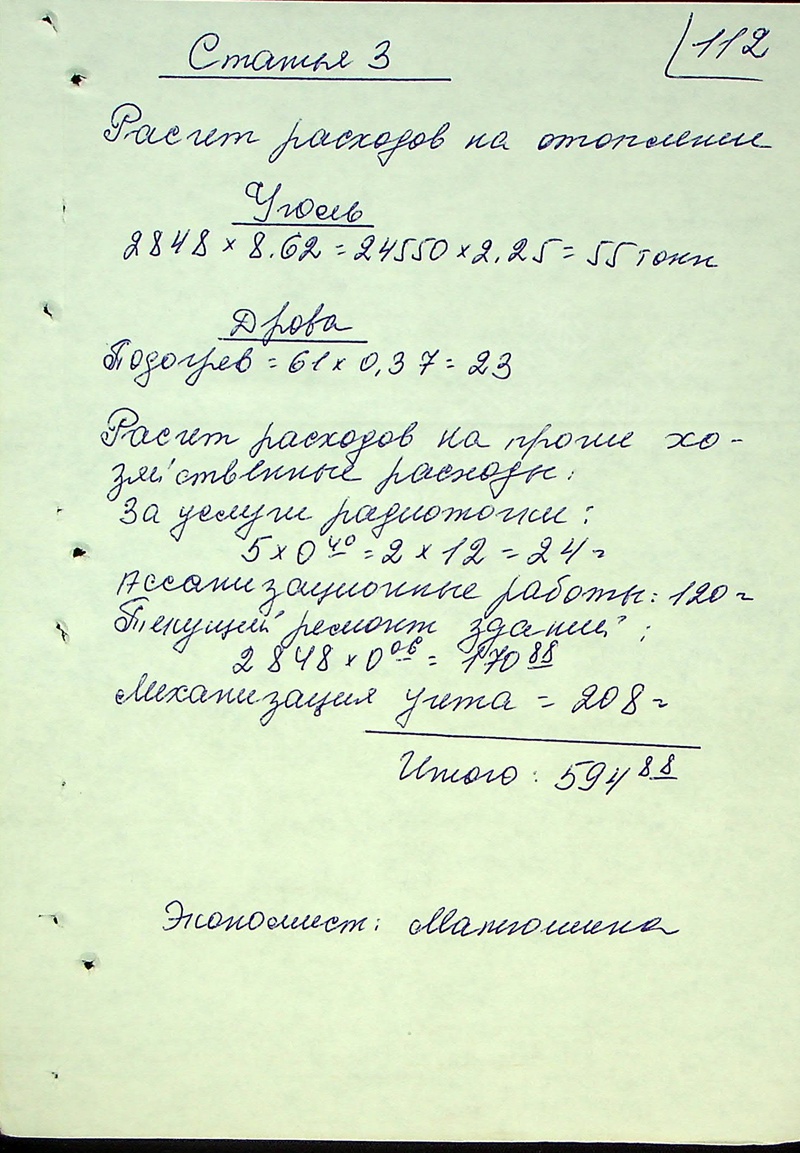 112
Статья 3
Расчет расходов на отопление
Уголь
2848 × 8.62 = 24550 × 2.25 = 55 тонн
Дрова
Подогрев = 61 × 0,37 = 23
Расчет расходов на прочие хо-
зяйственные расходы:
За услуги радиоточки:
5 × 0 40 = 2 × 12 = 24=
Ассанизационные работы: 120=
Текущий ремонт зданий:
2848 × 0 06 = 170 88
Механизация учета = 208=
Итого: 594 88
Экономист: Матюшина